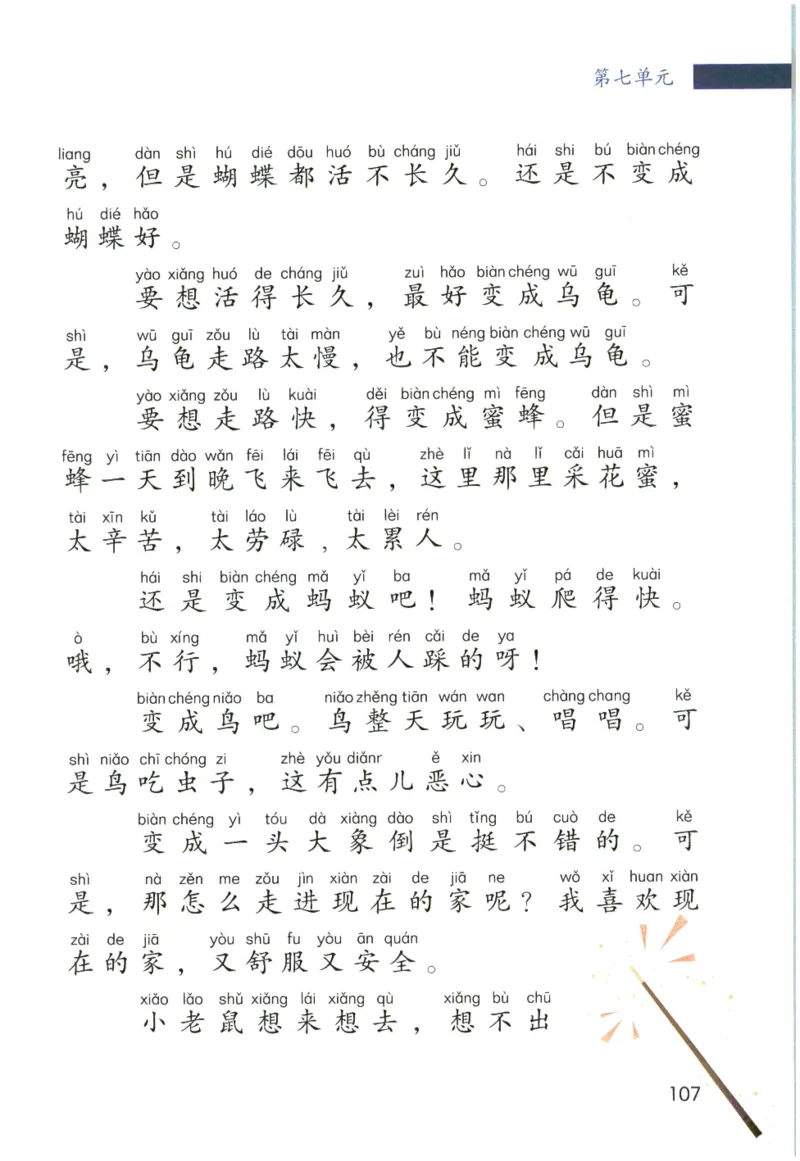 第七单元
liang dàn shì hú dié dōu huó bù cháng jiǔ hái shi bú biàn chéng
亮，但是蝴蝶都活不长久。还是不变成
hú dié hǎo
蝴蝶好。
yào xiǎng huó de cháng jiǔ zuì hǎo biàn chéng wū guī kě
要想活得长久，最好变成乌龟。可
shì wū guī zǒu lù tài màn yě bù néng biàn chéng wū guī
是，乌龟走路太慢，也不能变成乌龟。
yào xiǎng zǒu lù kuài děi biàn chéng mì fēng dàn shì mì
要想走路快，得变成蜜蜂。但是蜜
fēng yì tiān dào wǎn fēi lái fēi qù zhè lǐ nà lǐ cǎi huā mì
蜂一天到晚飞来飞去，这里那里采花蜜，
tài xīn kǔ tài láo lù tài lèi rén
太辛苦，太劳碌，太累人。
hái shi biàn chéng mǎ yǐ ba mǎ yǐ pá de kuài
还是变成蚂蚁吧！蚂蚁爬得快。
ò bù xíng mǎ yǐ huì bèi rén cǎi de ya
哦，不行，蚂蚁会被人踩的呀！
biàn chéng niǎo ba niǎo zhěng tiān wán wan chàng chang kě
变成鸟吧。鸟整天玩玩、唱唱。可
shì niǎo chī chóng zi zhè yǒu diǎnr ě xin
是鸟吃虫子，这有点儿恶心。
biàn chéng yì tóu dà xiàng dào shì tǐng bú cuò de kě
变成一头大象倒是挺不错的。可
shì nà zěn me zǒu jìn xiàn zài de jiā ne wǒ xǐ huan xiàn
是，那怎么走进现在的家呢？我喜欢现
zài de jiā yòu shū fu yòu ān quán
在的家，又舒服又安全。
xiǎo lǎo shǔ xiǎng lái xiǎng qù xiǎng bù chū
小老鼠想来想去，想不出
107